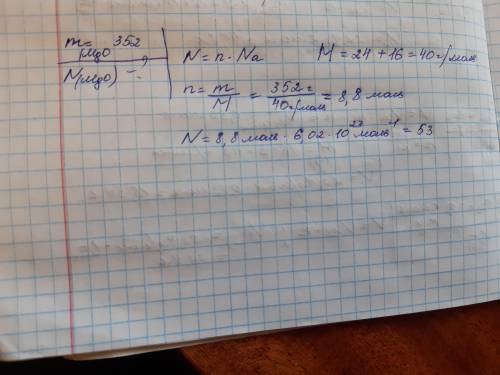 m = 352
MgO
N(MgO) - ?
N = n · Na M = 24 + 16 = 40 г/моль
n = m/M = 352 г/40 г/моль = 8,8 моль
N = 8,8 моль · 6,02 · 10²³ моль⁻¹ = 53